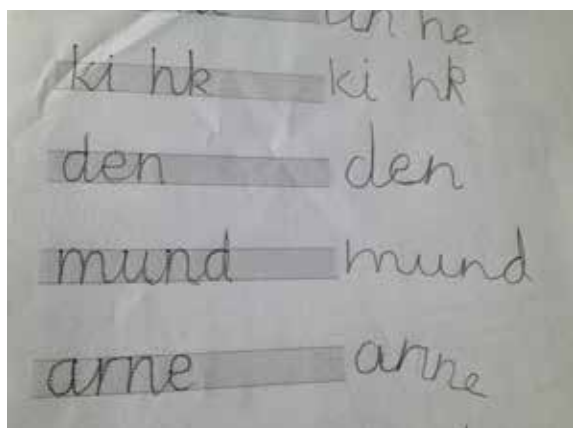 un ne
ki hk ki hk
den den
mund mund
arne arne